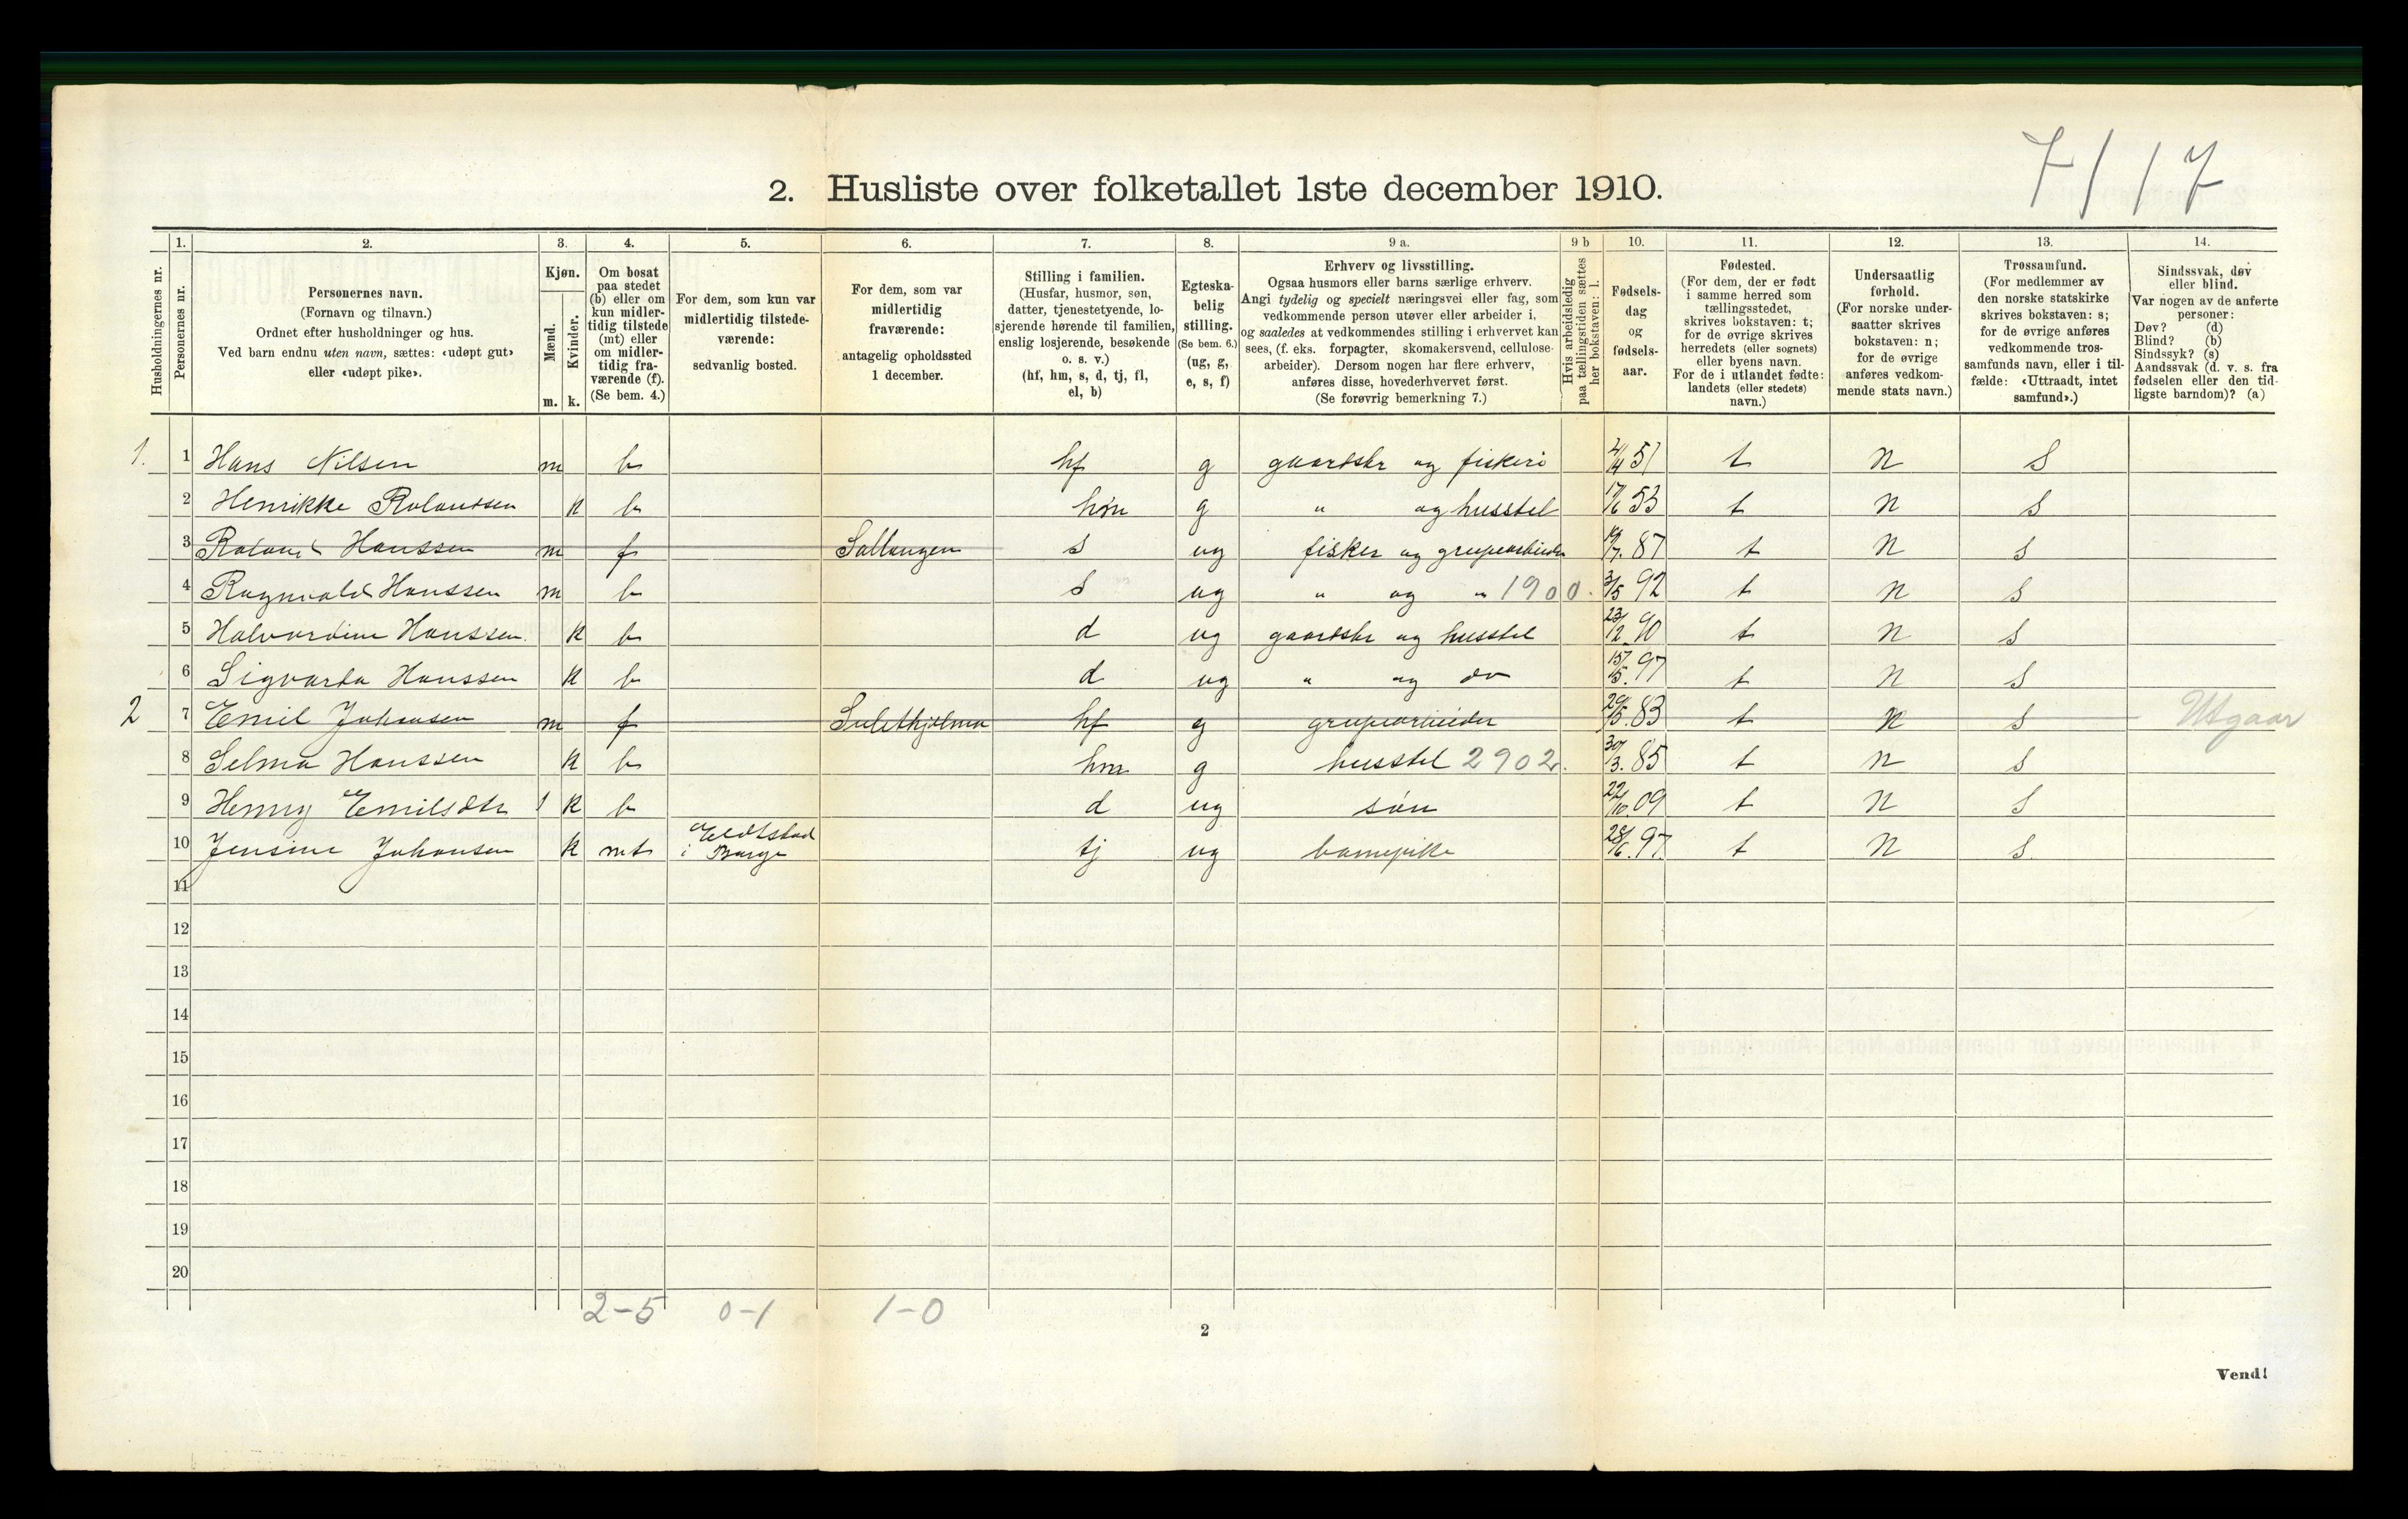 7/17
2. Husliste over folketallet 1ste december 1910.
Husholdningernes nr.
1.
Personernes nr.
2.
Personernes navn.
(Fornavn og tilnavn.)
Ordnet efter husholdninger og hus.
Ved barn endnu uten navn, sættes: «udøpt gut»
eller «udøpt pike».
3.
Kjøn.
Mænd.
Kvinder.
m. k.
4.
Om bosat
paa stedet
(b) eller om
kun midler-
tidig tilstede
(mt) eller
om midler-
tidig fra-
værende (f).
(Se bem. 4.)
5.
For dem, som kun var
midlertidig tilstede-
værende:
sedvanlig bosted.
6.
For dem, som var
midlertidig
fraværende:
antagelig opholdssted
1 december.
7.
Stilling i familien.
(Husfar, husmor, søn,
datter, tjenestetyende, lo-
sjerende hørende til familien,
enslig losjerende, besøkende
o. s. v.)
(hf, hm, s, d, tj, fl,
el, b)
8.
Egteska-
belig
stilling.
(Se bem. 6.)
(ug, g,
e, s, f)
9 a.
Erhverv og livsstilling.
Ogsaa husmors eller barns særlige erhverv.
Angi tydelig og specielt næringsvei eller fag, som
vedkommende person utøver eller arbeider i,
og saaledes at vedkommendes stilling i erhvervet kan
sees, (f. eks. forpagter, skomakersvend, cellulose-
arbeider). Dersom nogen har flere erhverv,
anføres disse, hovederhvervet først.
(Se forøvrig bemerkning 7.)
9 b
Hvis arbeidsledig
paa tællingstiden sættes
her bokstaven: l.
10.
Fødsels-
dag
og
fødsels-
aar.
11.
Fødested.
(For dem, der er født
i samme herred som
tællingsstedet,
skrives bokstaven: t;
for de øvrige skrives
herredets (eller sognets)
eller byens navn.
For de i utlandet fødte:
landets (eller stedets)
navn.)
12.
Undersaatlig
forhold.
(For norske under-
saatter skrives
bokstaven: n;
for de øvrige
anføres vedkom-
mende stats navn.)
13.
Trossamfund.
(For medlemmer av
den norske statskirke
skrives bokstaven: s;
for de øvrige anføres
vedkommende tros-
samfunds navn, eller i til-
fælde: «Uttraadt, intet
samfund».)
14.
Sindssvak, døv
eller blind.
Var nogen av de anførte
personer:
Døv? (d)
Blind? (b)
Sindssyk? (s)
Aandssvak (d. v. s. fra
fødselen eller den tid-
ligste barndom)? (a)
1. 1 Hans Nilsen m b hf g gaardsbr og fiskeri 51 t n s
2 Henrikke Rolandsen k b hm g " og husstel 17/6 53 t n s
3 Roland Hanssen m f Sallangen s ug fisker og grupearbeider 87 t n s
4 Ragnvald Hanssen m b s ug " og " 1900. 3/5 92 t n s
5 Halvardine Hanssen k b d ug gaardsbr og husstel 23/12 90 t n s
6 Sigvarda Hanssen k b d ug " og do 15/5. 97 t n s
2 7 Emil Johansen m f Sulithjelma hf g grupearbeider 29/5. 83 t n s Utgaar
8 Selma Hanssen k b hm g husstel 2902. 30/3. 85 t n s
9 Henny Emilsdtr 1 k b d ug søn 22/10. 09 t n s
10 Jensine Johansen k mt i Borge tj ug barnepike 28/6. 97. t n s.
11
12
13
14
15
16
17
18
19
20
2-5 0-1 1-0
2
Vend!